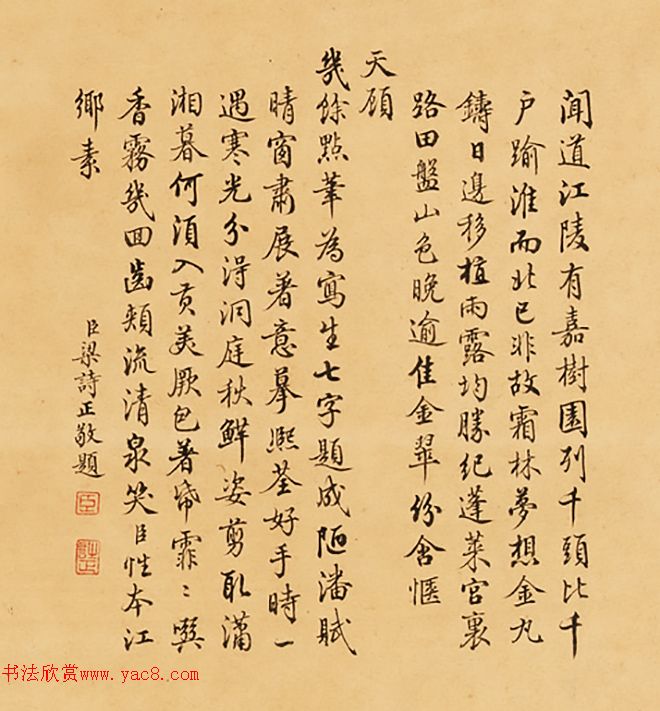 闻道江陵有嘉樹園列千頭比千
户踰淮而北已非故霜林夢想金丸
鑄日邊移植雨露均勝紀蓬萊宮裏
路田盤山色晚逾佳金翠份含愜
天顧
幾餘點筆為寫生七字題成陋潘賦
晴窗肅展著意摹熙荃好手時一
遇寒光分浔洞庭秋鮮姿剪取瀟
湘暮何須入貢美厥包著帋霏〻噀
香霧幾回齒頰流清泉笑臣性本江
鄉素
臣梁詩正敬題
臣
詩正
书法欣赏www.yac8.com